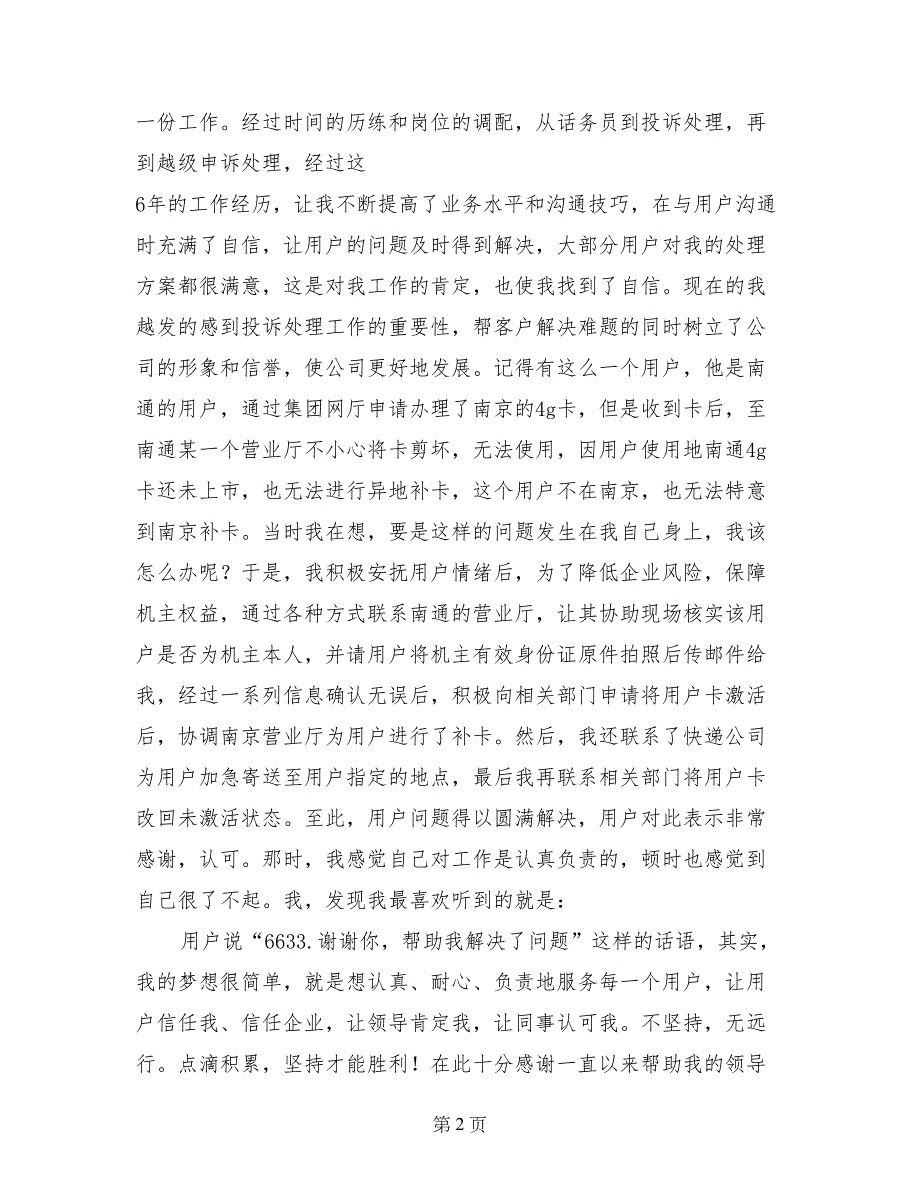 一份工作。经过时间的历练和岗位的调配，从话务员到投诉处理，再
到越级申诉处理，经过这
6年的工作经历，让我不断提高了业务水平和沟通技巧，在与用户沟通
时充满了自信，让用户的问题及时得到解决，大部分用户对我的处理
方案都很满意，这是对我工作的肯定，也使我找到了自信。现在的我
越发的感到投诉处理工作的重要性，帮客户解决难题的同时树立了公
司的形象和信誉，使公司更好地发展。记得有这么一个用户，他是南
通的用户，通过集团网厅申请办理了南京的4g卡，但是收到卡后，至
南通某一个营业厅不小心将卡剪坏，无法使用，因用户使用地南通4g
卡还未上市，也无法进行异地补卡，这个用户不在南京，也无法特意
到南京补卡。当时我在想，要是这样的问题发生在我自己身上，我该
怎么办呢？于是，我积极安抚用户情绪后，为了降低企业风险，保障
机主权益，通过各种方式联系南通的营业厅，让其协助现场核实该用
户是否为机主本人，并请用户将机主有效身份证原件拍照后传邮件给
我，经过一系列信息确认无误后，积极向相关部门申请将用户卡激活
后，协调南京营业厅为用户进行了补卡。然后，我还联系了快递公司
为用户加急寄送至用户指定的地点，最后我再联系相关部门将用户卡
改回未激活状态。至此，用户问题得以圆满解决，用户对此表示非常
感谢，认可。那时，我感觉自己对工作是认真负责的，顿时也感觉到
自己很了不起。我，发现我最喜欢听到的就是：
用户说“6633.谢谢你，帮助我解决了问题”这样的话语，其实，
我的梦想很简单，就是想认真、耐心、负责地服务每一个用户，让用
户信任我、信任企业，让领导肯定我，让同事认可我。不坚持，无远
行。点滴积累，坚持才能胜利！在此十分感谢一直以来帮助我的领导
第 2 页